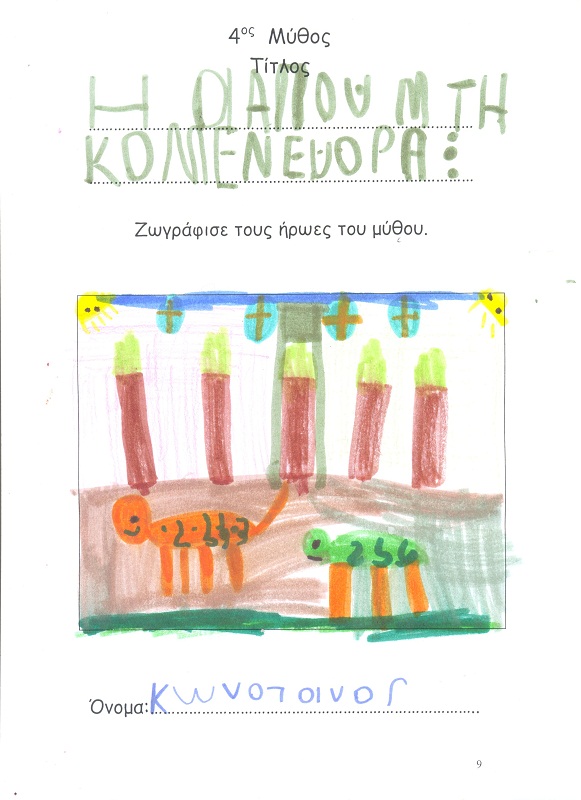 4ος Μύθος
Τίτλος
Η Μ ΤΗ
ΚΟΜΕΝΕΥΟΡΑ:
Ζωγράφισε τους ήρωες του μύθου.
2-
256
Όνομα: Κωνοτοινος
9